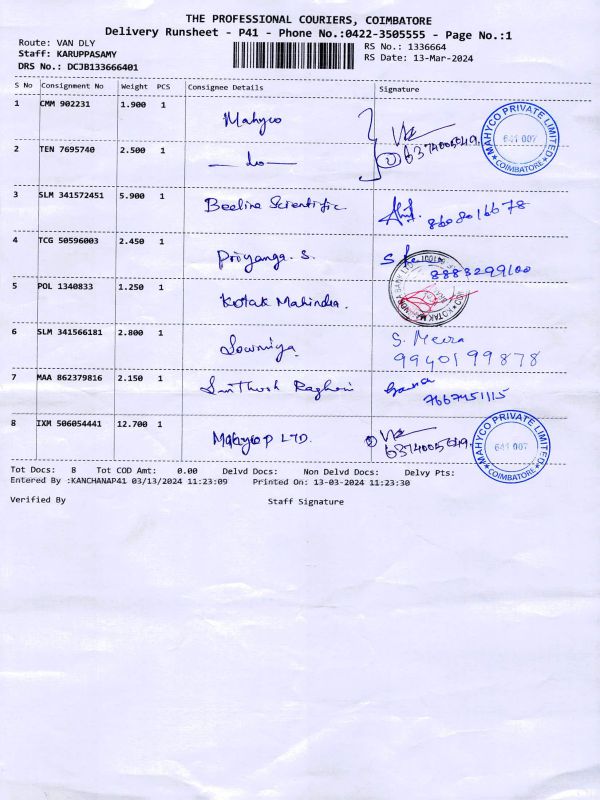 THE PROFESSIONAL COURIERS, COIMBATORE
Delivery Runsheet - P41 - Phone No.:0422-3505555 - Page No.:1
Route: VAN DLY
RS No.: 1336664
Staff: KARUPPASAMY
RS Date: 13-Mar-2024
DRS No.: DCJB133666401
S No Consignment No Weight PCS Consignee Details Signature
1 CMM 902231 1.900 1 Mahyco
MAHYCO PRIVATE LIMITED 641 007 COIMBATORE
2 TEN 7695740 2.500 1 — do — (2) 6374005049.
3 SLM 341572451 5.900 1 Beeline Scientific 8608016678
4 TCG 50596003 2.450 1 Priyanga. S. 8883299100
5 POL 1340833 1.250 1 Kotak Mahindra.
KOTAK MAHINDRA BANK
6 SLM 341566181 2.800 1 Sowmiya S. Meera
9940199878
7 MAA 862379816 2.150 1 7667451115
8 IXM 506054441 12.700 1 Mahyco P LTD. 6374005049.
MAHYCO PRIVATE LIMITED 641 007 COIMBATORE
Tot Docs: 8 Tot COD Amt: 0.00 Delvd Docs: Non Delvd Docs: Delvy Pts:
Entered By :KANCHANAP41 03/13/2024 11:23:09 Printed On: 13-03-2024 11:23:30
Verified By Staff Signature